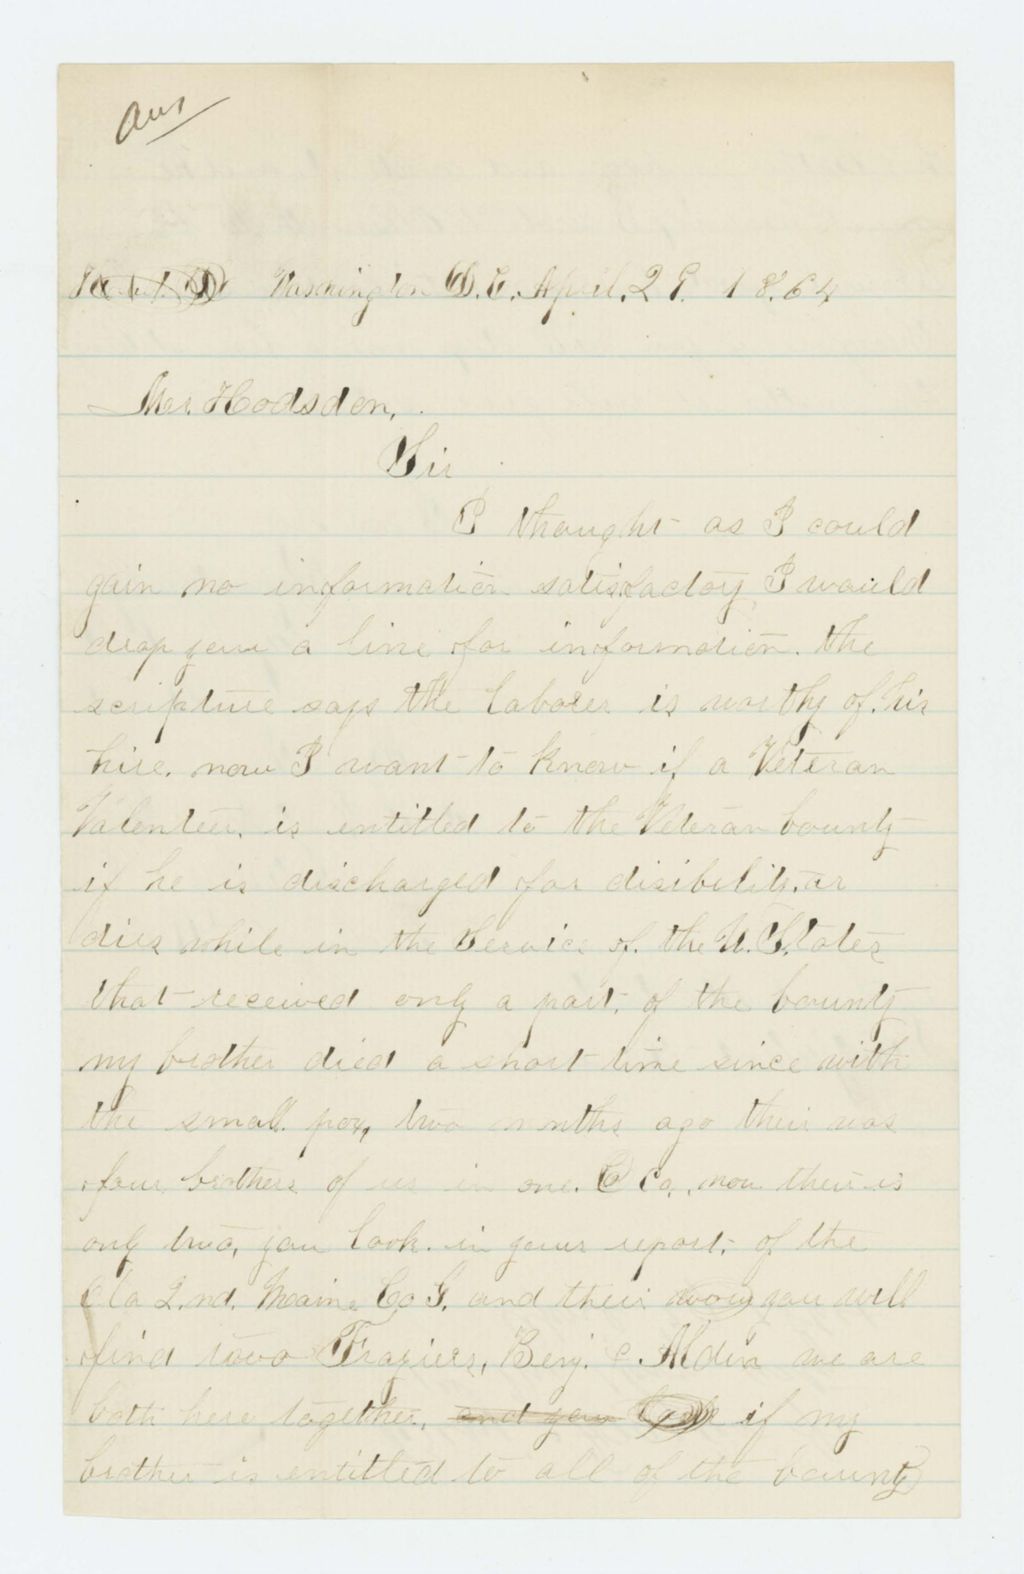 Ans
Washington D.C. April. 29. 1864
Mr. Hodsdon,
Sir
I thought as I could
gain no information satisfactoy, I would
drop you a line for information. the
scripture says the laborer is worthy of. his
hire. now I want to know if a Veteran
Valenteer. is entitled to the Veteran bounty
if he is discharged for disibility. or
dies while in the Service of. the U. States
that received only a part. of the bounty
my brother died a short time since with
the small. pox, two months ago their was
four brothers of us in one. Co., now their is
only two, you look. in your report. of the
2.nd. Maine Co G. and their you will
find towo Fraziers, Benj. & Aldin we are
both here together, and you look if my
brother is entitled to all of the bounty